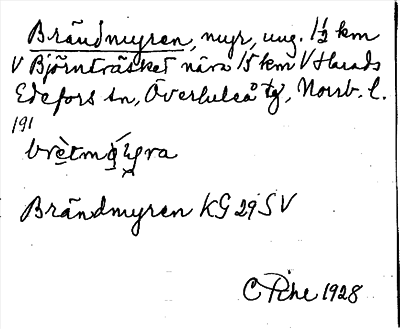 Brändmyren, myr, ung. 1½ km
V Björnträsket nära 15 km V Harads
Edefors sn, Överluleå tg, Norrb. l.
191
Brändmyren KG 29 SV
C Pihl 1928